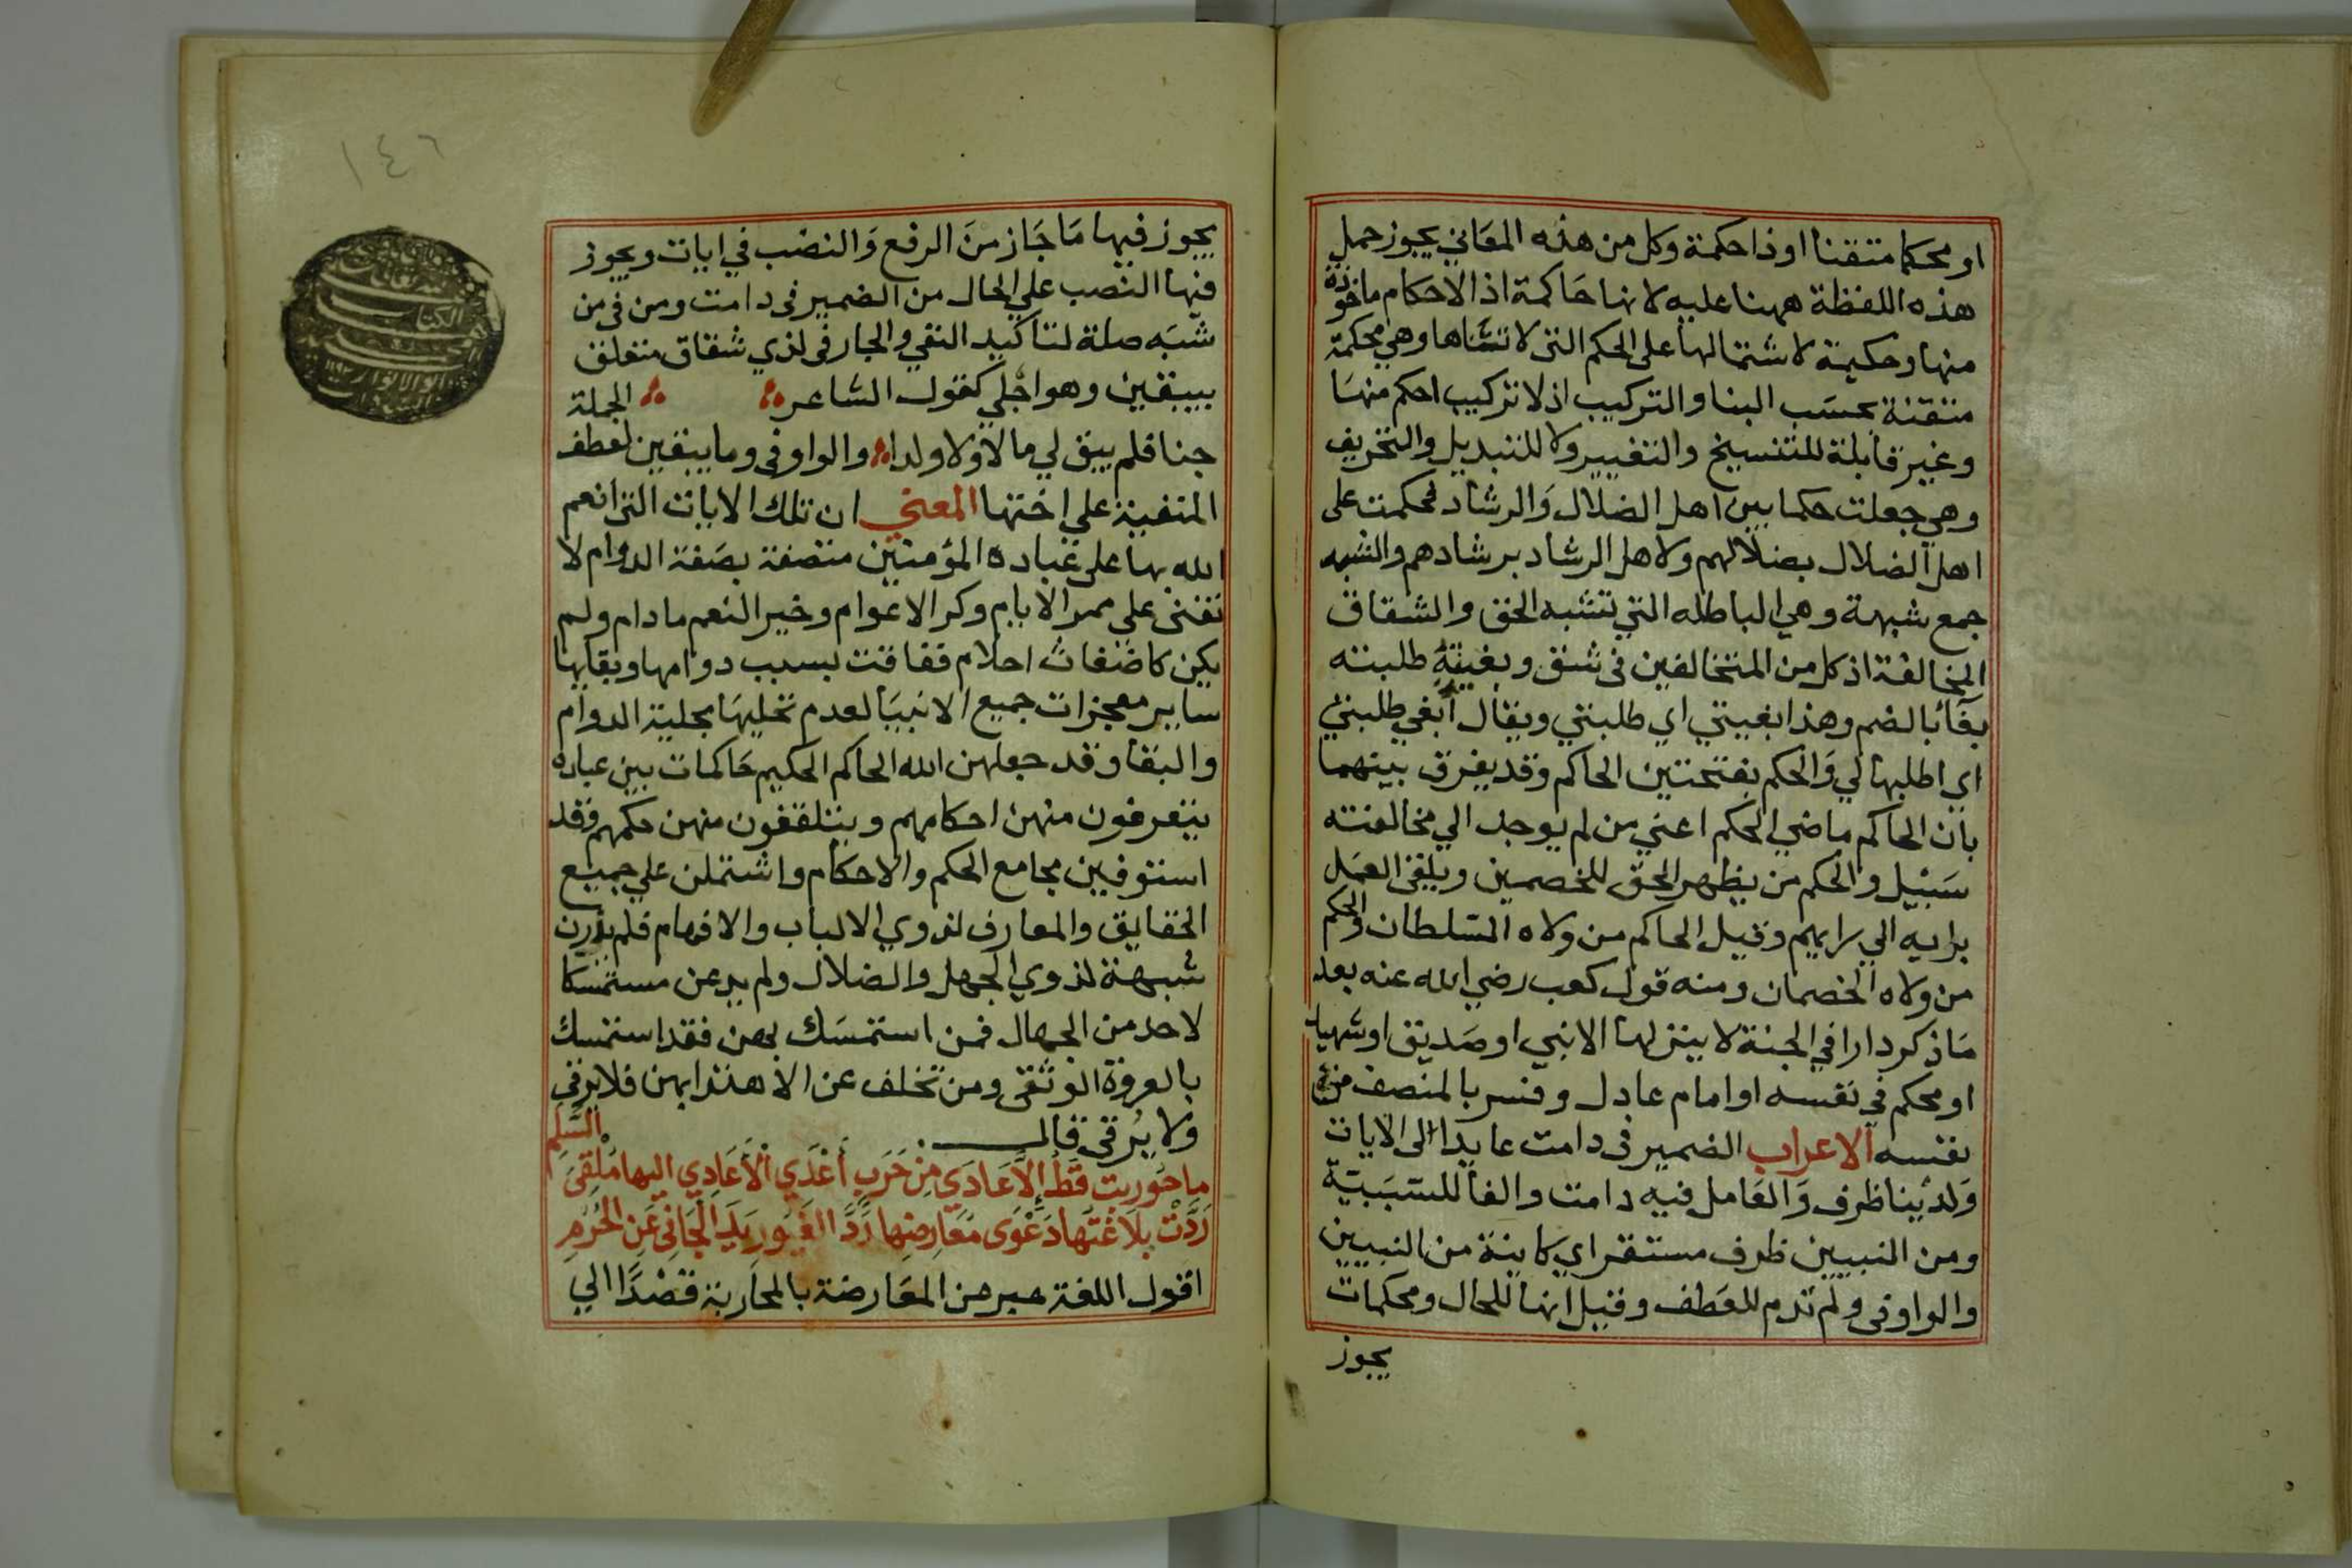 او محكما متقنا او ذا حكمة وكل من هذه المعاني يجوز حمل
هذه اللفظة ههنا عليه لانها حاكمة اذ الاحكام ماخوذة
منها وحكيمة لاشتمالها على الحكم التى لا تتناها وهي محكمة
متقنة بحسب البنا والتركيب اذ لا تركيب احكم منها
وغير قابلة للتنسيخ والتغيير ولا للتبديل والتحريف
وهي جعلت حكما بين اهل الضلال والرشاد فحكمت على
اهل الضلال بضلالهم ولاهل الرشاد برشادهم والشبه
جمع شبهة وهي الباطله التي تشبه الحق والشقاق
المخالفة اذ كل من المتخالفين فى شق وبغيته طلبته
بغآبا لضم وهذا بغيتي اي طلبتي ويقال أبغي طلبتي
اي اطلبها لي والحكم بفتحتين الحاكم وقد يفرق بينهما
بان الحاكم ماضي الحكم اعني من لم يوجد الي مخالفته
سبيل والحكم من يظهر الحق للخصمين ويلقى العمل
برايه الي رايهم وقيل الحاكم من ولاه السلطان والحكم
من ولاه الخصمان ومنه قول كعب رضي الله عنه بعد
ما ذكر دارا في الجنة لا ينزلها الا نبي او صديق او شهيد
او محكم في نفسه او امام عادل وفسر بالمنصف من
نفسه الاعراب الضمير فى دامت عايد الى الايات
ولدينا ظرف والعامل فيه دامت والفا للسببية
ومن النبيين ظرف مستقر اي كاينة من النبيين
والواو فى ولم تدم للعطف وقيل انها للحال ومحكمات
يجوز
١٤٦
يجوز فيها ما جاز من الرفع والنصب في ايات ويجوز
فيها النصب علي الحال من الضمير فى دامت ومن فى من
شبه صلة لتاكيد النفي والجار فى لذي شقاق متعلق
بيبقين وهو اجلي كقول الشاعر الجملة
جنا فلم يبق لي مالا ولا ولدا والواو فى وما يبقين لعطف
المنفية علي اختها المعني ان تلك الايات التى انعم
الله بها على عباده المؤمنين متصفة بصفة الدوام لا
تفنى على ممر الايام وكر الاعوام وخير النعم ما دام ولم
يكن كاضغاث احلام ففاقت بسبب دوامها وبقايها
ساير معجزات جميع الانبيا لعدم تحليها بحلية الدوام
والبقا وقد جعلهن الله الحاكم الحكيم حاكمات بين عباده
يتعرفون منهن احكامهم ويتلقفون منهن حكمهم فقد
استوفيين مجامع الحكم والاحكام واشتملن علي جميع
الحقايق والمعارف لذوي الالباب والافهام فلم يذرن
شبهة لذوي الجهل والضلال ولم يدعن مستمسكا
لاحد من الجهال فمن استمسك بهن فقد استمسك
بالعروة الوثقى ومن تخلف عن الاهتدا بهن فلا يرقي
ولا يرقى قال السلم
ما حوربت قط إلا عاد من حرب أعدي الأعادي اليها ملقي
ردت بلاغتها دعوى معارضها رد الغيور يد الجاني عن الحرم
اقول اللغة عبر عن المعارضة بالمحاربة قصدا الي